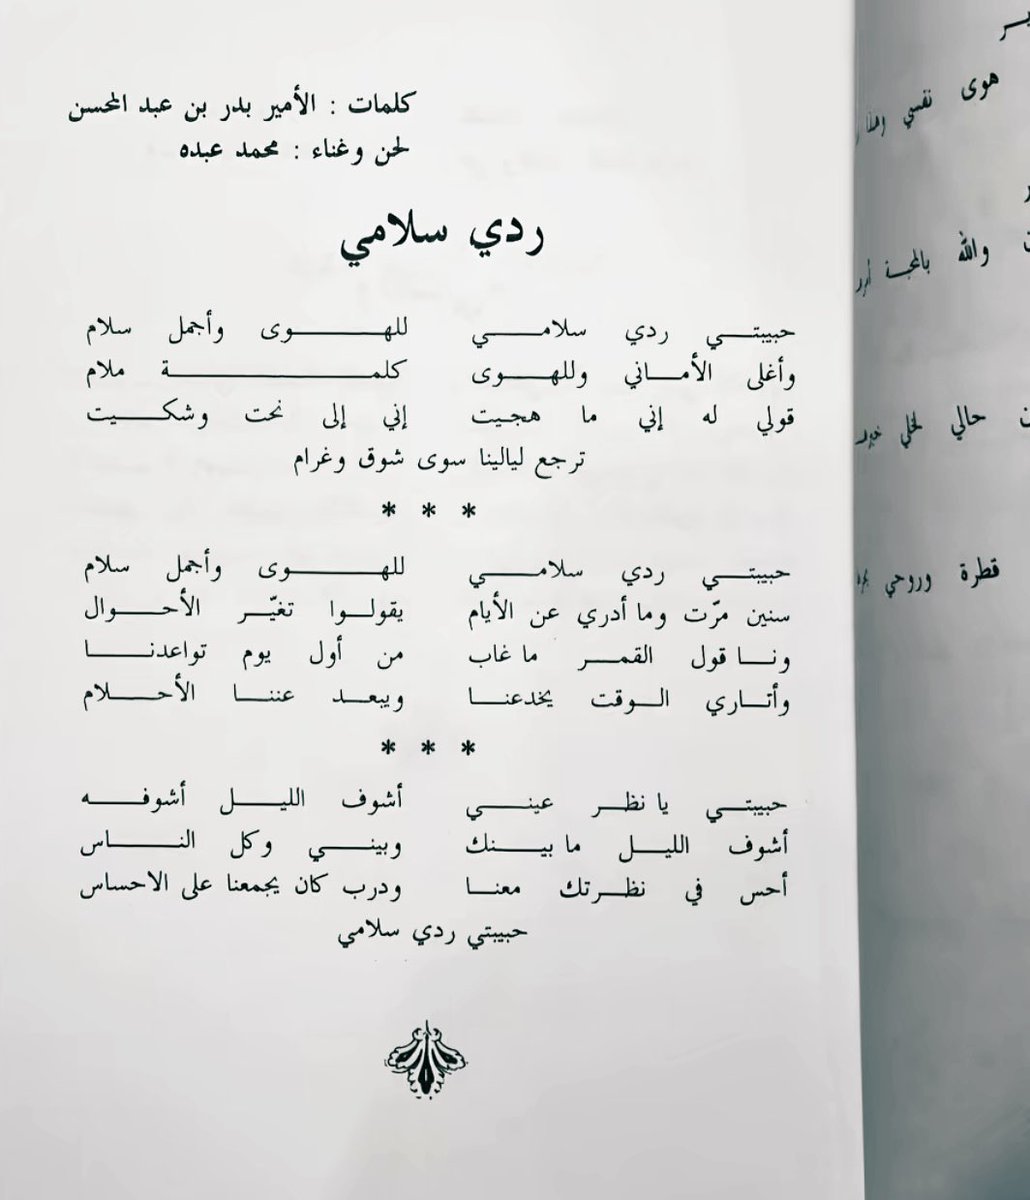 كلمات : الأمير بدر بن عبد المحسن
لحن وغناء : محمد عبده
ردي سلامي
حبيبتي ردي سلامي للهوى وأجمل سلام
وأغلى الأماني وللهوى كلمة ملام
قولي له إني ما هجيت إني إلى نحت وشكيت
ترجع ليالينا سوى شوق وغرام
* * *
حبيبتي ردي سلامي للهوى وأجمل سلام
سنين مرّت وما أدري عن الأيام يقولوا تغيّر الأحوال
ونا قول القمر ما غاب من أول يوم تواعدنا
وأتاري الوقت يخدعنا ويبعد عننا الأحلام
* * *
حبيبتي يا نظر عيني أشوف الليل أشوفه
أشوف الليل ما بينك وبيني وكل الناس
أحس في نظرتك معنا ودرب كان يجمعنا على الاحساس
حبيبتي ردي سلامي
هوى نفسي
والله بالمحبة
حالي لخلي
قطرة وروحي